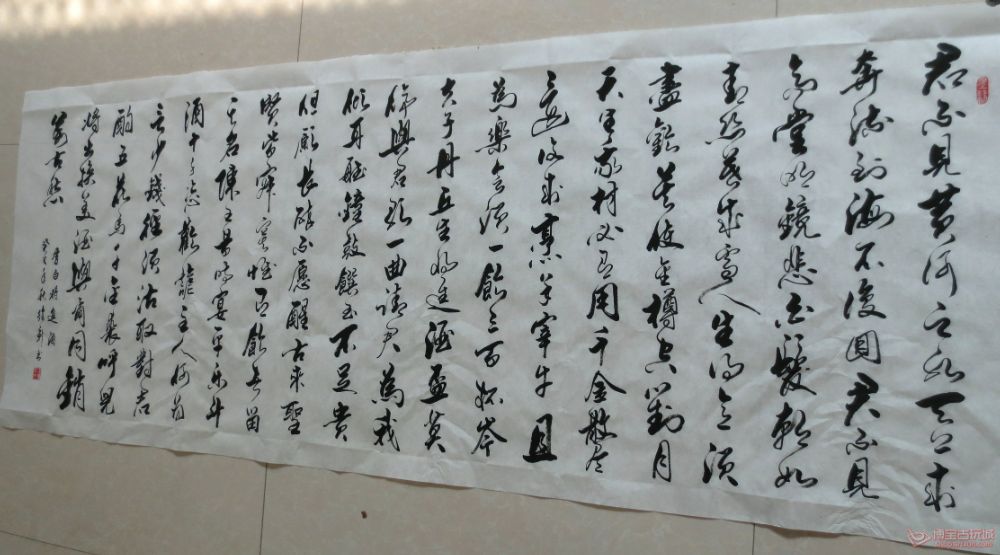 君不见黄河之水天上来
奔流到海不復回君不見
高堂明鏡悲白髮朝如
青丝暮成雪人生得意須
盡歡莫使金樽空對月
天生我材必有用千金散尽
還復来烹羊宰牛且
為樂會須一飲三百杯岑
夫子丹丘生將進酒杯莫
停與君歌一曲請君為我
倾耳聽鐘鼓饌玉不足貴
但願長醉不愿醒古來聖
賢皆寂寞惟有飲者留
其名陳王昔時宴平樂斗
酒十千恣歡謔主人何為
言少錢徑須沽取對君
酌五花馬千金裘呼兒
將出換美酒與爾同銷
萬古愁
李白將進酒
癸巳年秋
博宝古玩城